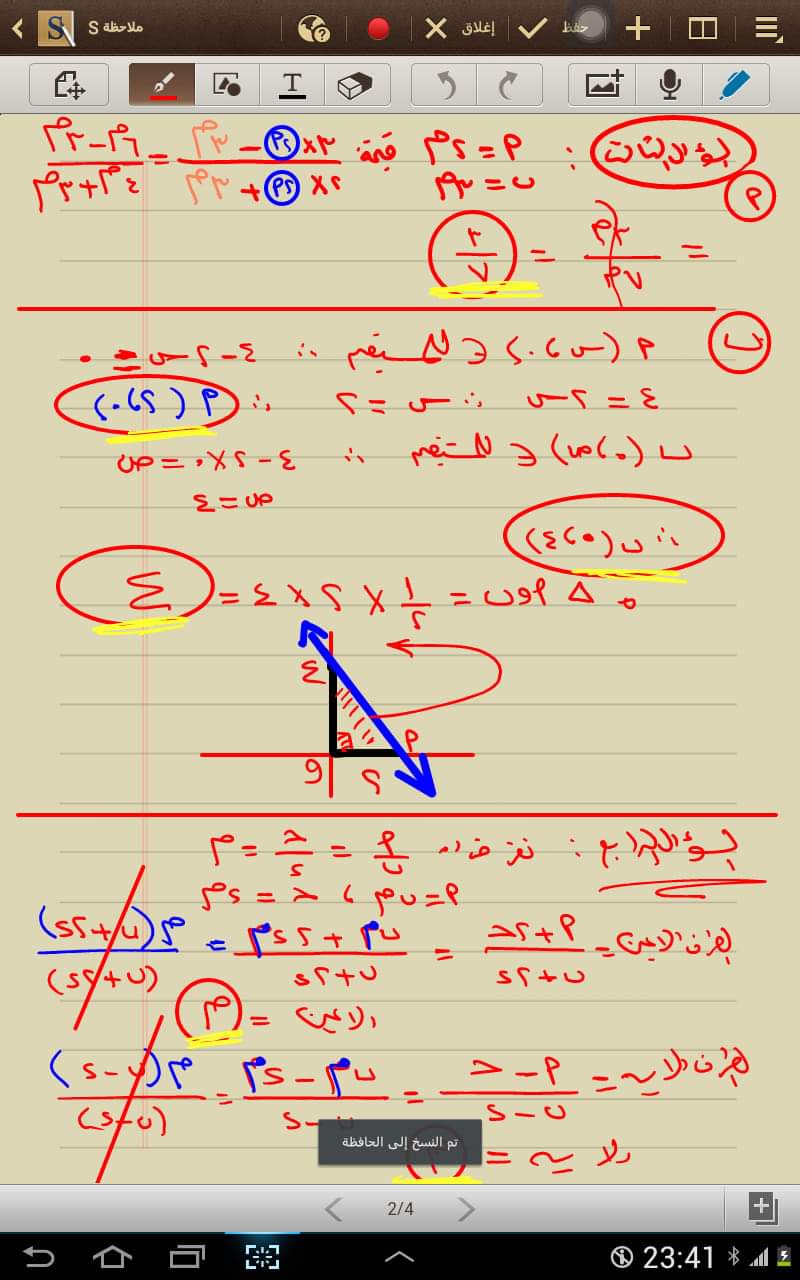 ملاحظة S
إغلاق
حفظ
T
السؤال الثالث : م٢ = م قيمة ٣×م٢ − م٣ / ٢×م٢ + م٣ = م٦ − م٣ / م٤ + م٣
ب = م٣
م
= م٣ / م٧ = ٣ / ٧
ب
م (س ، ٠) ∈ للمستقيم ∴ ٤ − ٢س = ٠
٤ = ٢س ∴ س = ٢ ∴ م (٢ ، ٠)
ب (٠ ، ص) ∈ للمستقيم ∴ ٤ − ٢×٠ = ص
ص = ٤
∴ ب (٠ ، ٤)
م Δ أوب = ١/٢ × ٢ × ٤ = ٤
٤
و
٢
م
السؤال الرابع : نفرض أن أ / ب = ج / د = م
أ = ب م ، ج = د م
الطرف الأيمن = أ + ٢ج / ب + ٢د = ب م + ٢د م / ب + ٢د = م (ب + ٢د) / (ب + ٢د)
الأيمن = م
الطرف الأيسر = أ − ج / ب − د = ب م − د م / ب − د = م (ب − د) / (ب − د)
الأيسر =
تم النسخ إلى الحافظة
2/4
23:41